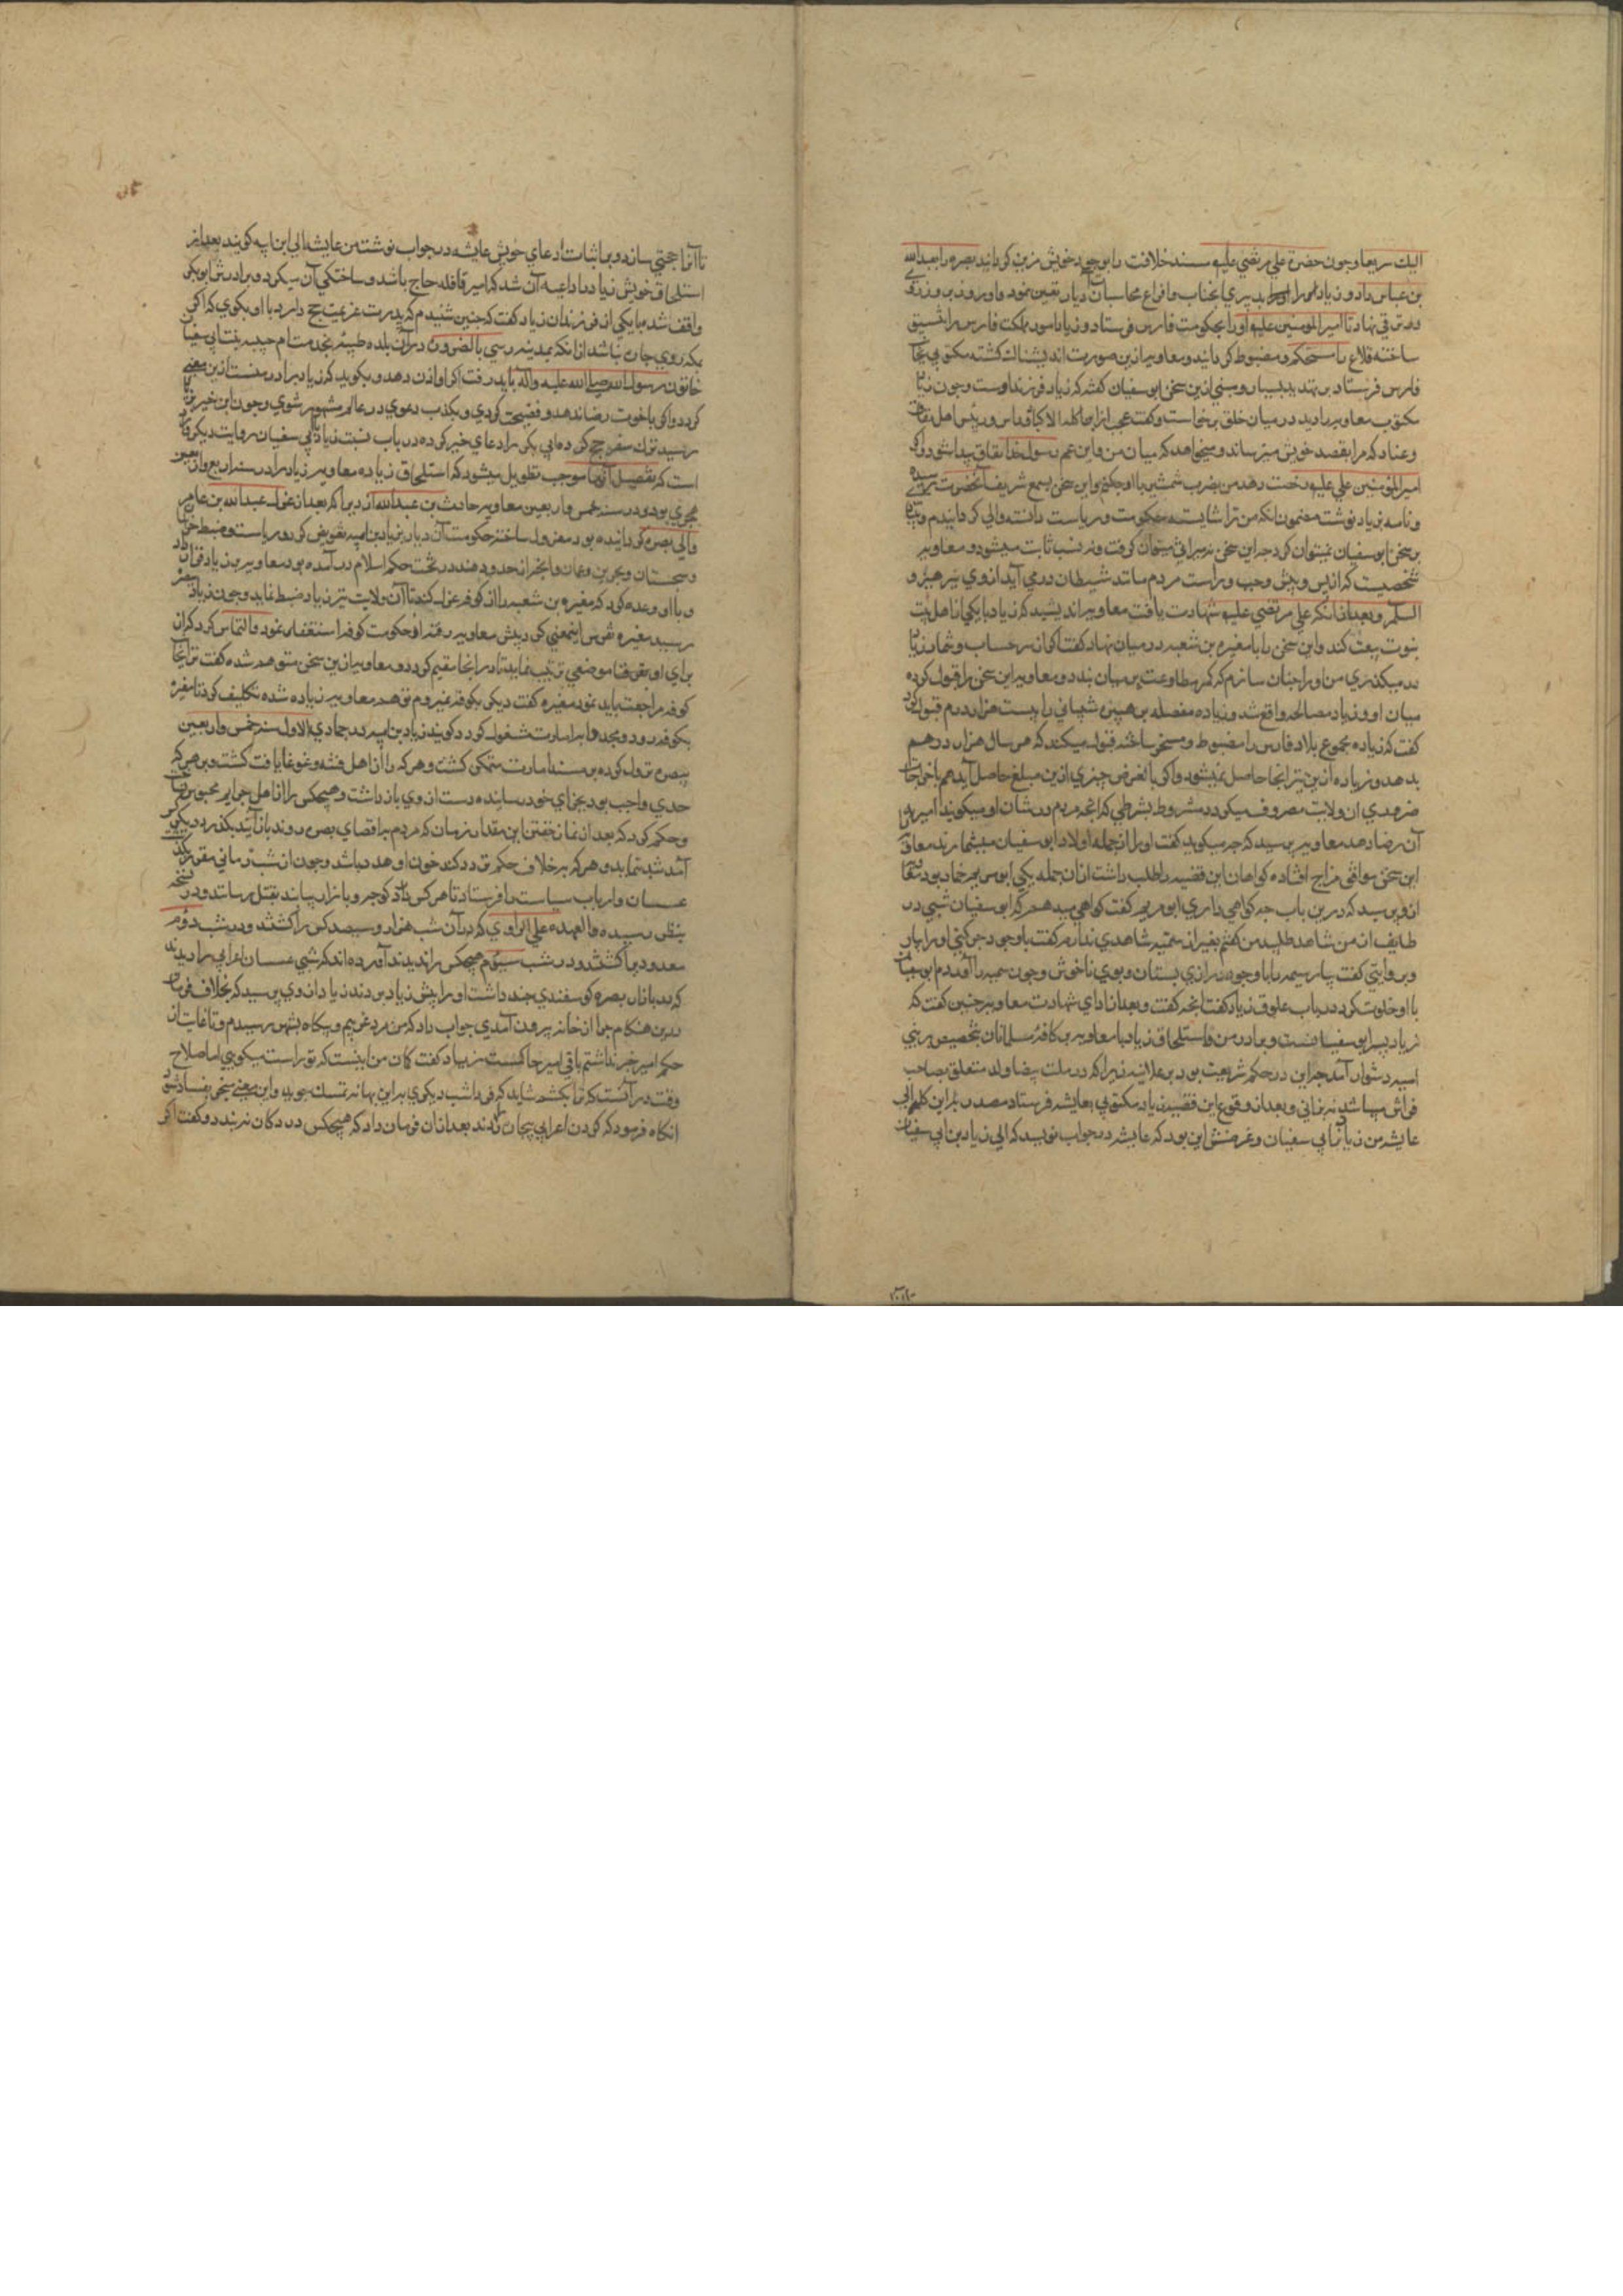 الیك سریعا و چون حضرة علی مرتضی علیه مسند خلافت را بوجود خویش مزین کردانید بصره را بعبدالله
بن عباس داد و زیاد همراه بدیاری آنجناب و افراغ محاسبات آن دیار تعین نمود و او روز بروز روی
در ترقی نهاد تا امیر المومنین علیه او را بحکومت فارس فرستاد و زیاد امور مملکت فارس را تنسیق
ساخته قلاع را مستحکم و مضبوط کردانید و معاویه ازین صورت اندیشناك کشته مکتوبی بجانب
فارس فرستاد بر تهدید بسیار و مبنی ازین سخن ابو سفیان کفته که زیاد فرزند اوست و چون زیاد
مکتوب معاویه را دید در میان خلق برخاست و کفت عجب از ابن آکلة الاکباد و راس و رئیس اهل نفاق
و عناد که مرا بقصد خویش میترساند و میخواهد که میان من و ابن عم رسول خدا نفاق پیدا شود و اکر
امیر المومنین علی علیه رخصت دهد من بضرب شمشیر با او چکنم و این سخن بسمع شریف آنحضرت رسیده
و نامه بزیاد نوشت مضمون آنکه من ترا شایسته حکومت و ریاست دانسته والی کردانیدم و بنا
بر سخن ابو سفیان نمیتوان کرد چه این سخن نه میراث میتوان کرفت و نه نسب ثابت میشود و معاویه
شخصیست که از پس و پیش و چپ و راست مردم مانند شیطان درمی آید از وی بپرهیز و
السلم و بعد از آنکه علی مرتضی علیه شهادت یافت معاویه اندیشید که زیاد با یکی از اهل بیت
نبوت بیعت کند و این سخن را با مغیره بن شعبه در میان نهاد کفت اکر از سر حساب و شمار زیاد
در میکذری من او را چنان سازم که کمر مطاوعت بر میان بندد و معاویه این سخن را قبول کرده
میان او و زیاد مصالحه واقع شد و زیاده مصقله بن هبیره شیبانی را بیست هزار درم قبول کرد
کفت که زیاده مجموع بلاد فارس را مضبوط و مسخر ساخته قبول میکند که هر سال هزار درهم
بدهد و زیاده ازین نیز انجا حاصل نمیشود و اکر بالفرض چیزی ازین مبلغ حاصل آید هم باخراجات
ضروری آن ولایت مصروف میکردد مشروط بشرطی که انچه مردم در شان او میکویند امیر
آن رضا دهد معاویه پرسید که چه میکوید کفت او را از جمله اولاد ابو سفیان میشمارند معاویه
این سخن موافق مزاج افتاده کواهان این قضیه را طلب داشت از ان جمله یکی ابو مریم خمار بود
از و پرسید که درین باب چه کواهی داری ابو مریم کفت کواهی میدهم که ابو سفیان شبی در
طایف از من شاهد طلبید من کفتم بغیر از سمیه شاهدی ندارم کفت با وجود چرکینی او را بیار
و بروایتی کفت بیار سمیه را با وجود درازی پستان و بوی ناخوش و چون سمیه را آوردم ابو سفیان
با او خلوت کرد در باب علوق زیاد کفت انچه کفت و بعد از ادای شهادت معاویه چنین کفت که
زیاد پسر ابو سفیانست و برادر من و استلحاق زیاد با معاویه بر کافه مسلمانان تخصیص بر بنی
امیه دشوار آمد چرا این در حکم شریعت بود بر علانیه زیرا که در ملت بیضا ولد متعلق بصاحب
فراش میباشد نه زانی و بعد از وقوع این قضیه زیاد مکتوبی بعایشه فرستاد مصدر بر این کلمه الی
عایشه من زیاد بن ابی سفیان و غرضش این بود که عایشه در جواب نویسد که الی زیاد بن ابی سفیان
تا آنرا حجتی سازد و بر اثبات ادعای خویش عایشه در جواب نوشت من عایشه الی ابن ابیه کویند بعد از
استلحاق خویش زیاد را داعیه آن شد که امیر قافله حاج باشد و ساختکی آن میکرد و برادرش ابو بکر
واقف شد با یکی از فرزندان زیاد کفت که چنین شنیدم که پدرت عزیمت حج دارد با او بکوی که اکر
بمکه روی چاره نباشد از آنکه بمدینه رسی بالضروره در آن بلده طیبه بخدمت ام حبیبه بنت ابی سفیان
خاتون رسول الله صلی الله علیه واله باید رفت اکر او اذن دهد و بکوید که زیاد برادر منست ازین معنی
کردد و اکر باخوت رضا ندهد و فضیحت کردی و بکذب دعوی در عالم مشهور شوی و چون این خبر بزیاد
رسید ترك سفر حج کرده ابی بکر را دعای خیر کرده در باب نسبت زیاد بابی سفیان روایت دیکر وارد
است که تفصیل آنها موجب تطویل میشود که استلحاق زیاده معاویه زیاد را در سنه اربع و اربعین
هجری بود و در سنه خمس و اربعین معاویه حارث بن عبدالله ازدی را که بعد از عزل عبدالله بن عامر
والی بصره کردانیده بود معزول ساخته حکومت آن دیار بزیاد بن ابیه تفویض کرد و ریاست و ضبط خراسان
و سجستان و بحرین و عمان و انچه از حدود هند در تحت حکم اسلام در آمده بود معاویه بزیاد قرار داد
و با او وعده کرد که مغیره بن شعبه را از کوفه عزل کند تا آن ولایت نیز زیاد ضبط نماید و چون زیاد
رسید مغیره بفرس اینمعنی کرد پیش معاویه رفته از حکومت کوفه استعفا نمود و التماس کرد که از
برای او بقرقسا موضعی ترتیب نماید تا در انجا مقیم کردد و معاویه ازین سخن متوهم شده کفت ترا انجا
کوفه مراجعت باید نمود مغیره کفت دیکر بکوفه نمیروم توهم معاویه زیاده شده تکلیف کرد تا مغیره
بکوفه رود و مجددا بامارت مشغول کردد کویند زیاد بن ابیه در جمادی الاول سنه خمس و اربعین
ببصره نزول کرده بر مسند امارت متمکن کشت و هر که را از اهل فتنه و غوغا یافت کشت و بر هر که
حدی واجب بود بجزای خود رسانیده دست از وی باز داشت و هیچکس را از اهل جرایم محبوس نساخت
و حکم کرد که بعد از نماز خفتن این مقدار زمان که مردم باقصای بصره روند باز آیند بکذرد دیکر کسی
آمد شد ننماید و هر که بر خلاف حکم تردد کند خون او هدر باشد و چون از شب زمانی مقرر بکذشت
عسسان و ارباب سیاست را فرستاد تا هر کس را که در کوچه و بازار بیابند بقتل رسانند و در نسخه
بنظر رسیده و العهده علی الراوی که در آن شب هزار و سیصد کس را کشتند و در شب دوم
معدود را کشتند و در شب سیوم هیچکس را ندیدند آورده اند که شبی عسسان اعرابی را دیدند
که در بازار بصره کوسفندی چند داشت او را پیش زیاد بردند زیاد از وی پرسید که بخلاف فرمان
درین هنکام چرا از خانه بیرون آمدی جواب داد که من مرد غریبم و بیکاه بشهر رسیدم و تا غایت از
حکم امیر خبر نداشتم باقی امیر حاکمست زیاد کفت کمان من اینست که تو راست میکویی اما صلاح
وقت در آنست که ترا بکشم شاید که فردا شب دیکری براین بهانه تمسك جوید و این معنی بفساد شود
انکاه فرمود که کردن اعرابی بیچاره زدند بعد از ان فرمان داد که هیچکس در دکان نبندد و کفت اکر